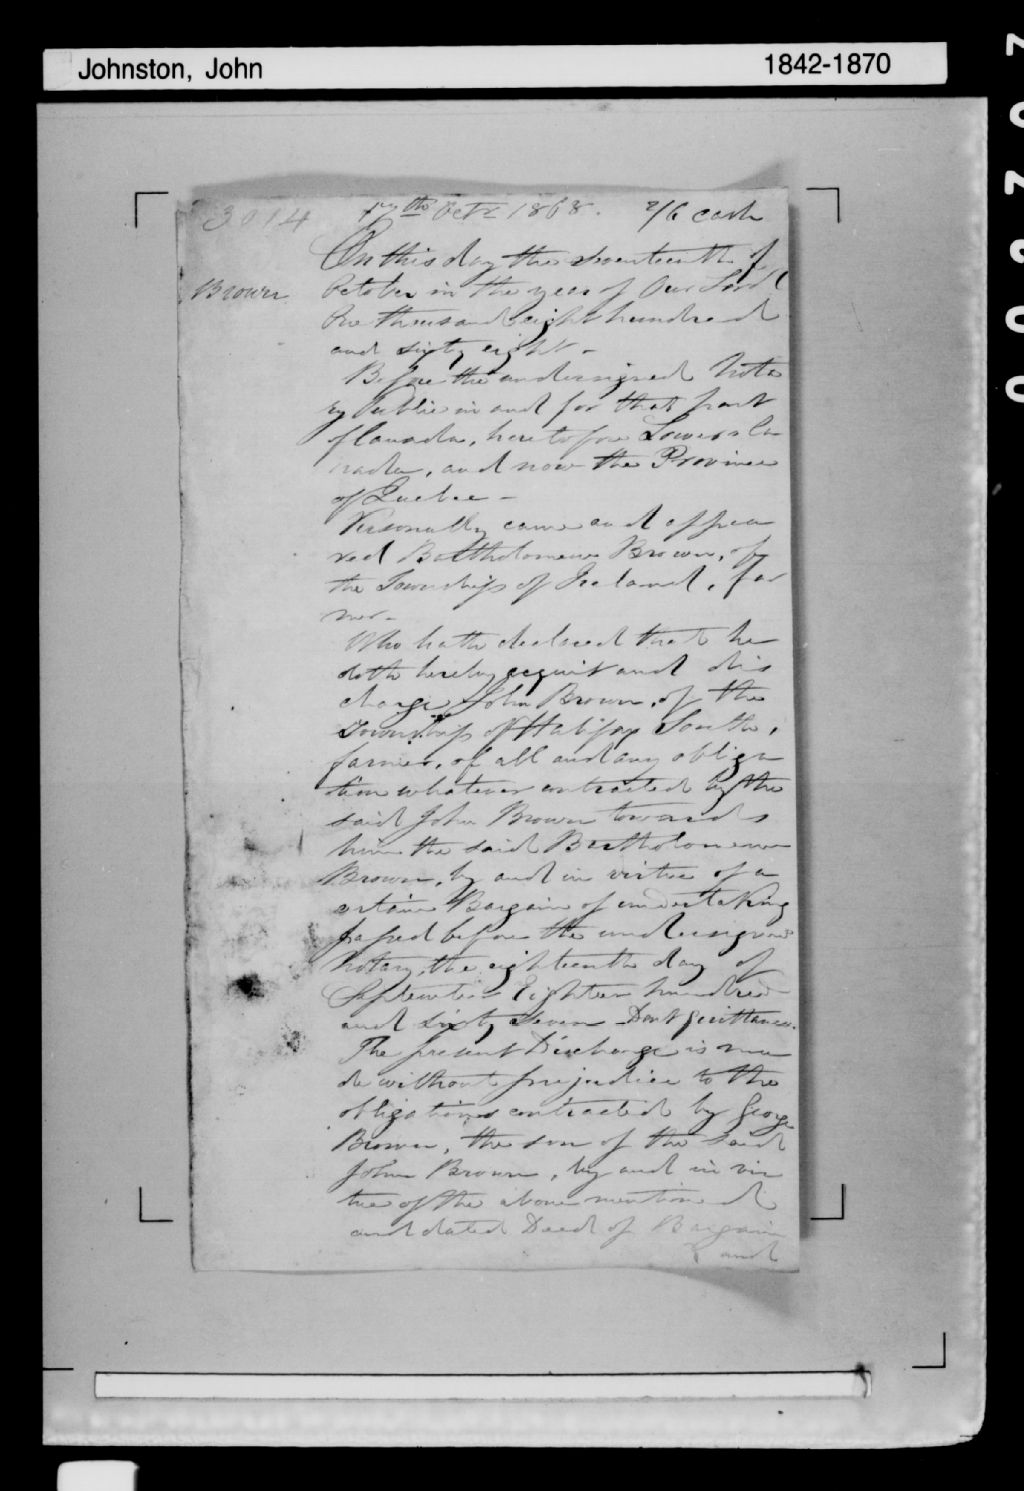 Johnston, John 1842-1870
3014 17th Octr 1868. 2/6 cash
On this day the seventeenth of
Brown October in the year of Our Lord
One thousand eight hundred
and sixty eight -
Before the undersigned Nota
ry Public in and for that part
of Canada, heretofore Lower Ca
nada, and now the Province
of Quebec -
Personally came and appea
red Bartholomew Brown, of
the Township of Ireland, far
mer -
Who hath declared that he
doth hereby acquit and dis
charge John Brown, of the
Township of Halifax South,
farmer, of all and any obliga
tion whatever contracted by the
said John Brown towards
him the said Bartholomew
Brown, by and in virtue of a
certain Bargain of undertaking
passed before the undersigned
Notary, the eighteenth day of
September Eighteen hundred
and sixty seven Dont quittance.
The present Discharge is ma
de without prejudice to the
obligations contracted by George
Brown, the son of the said
John Brown, by and in vir
tue of the above mentioned
and dated Deed of Bargain
and